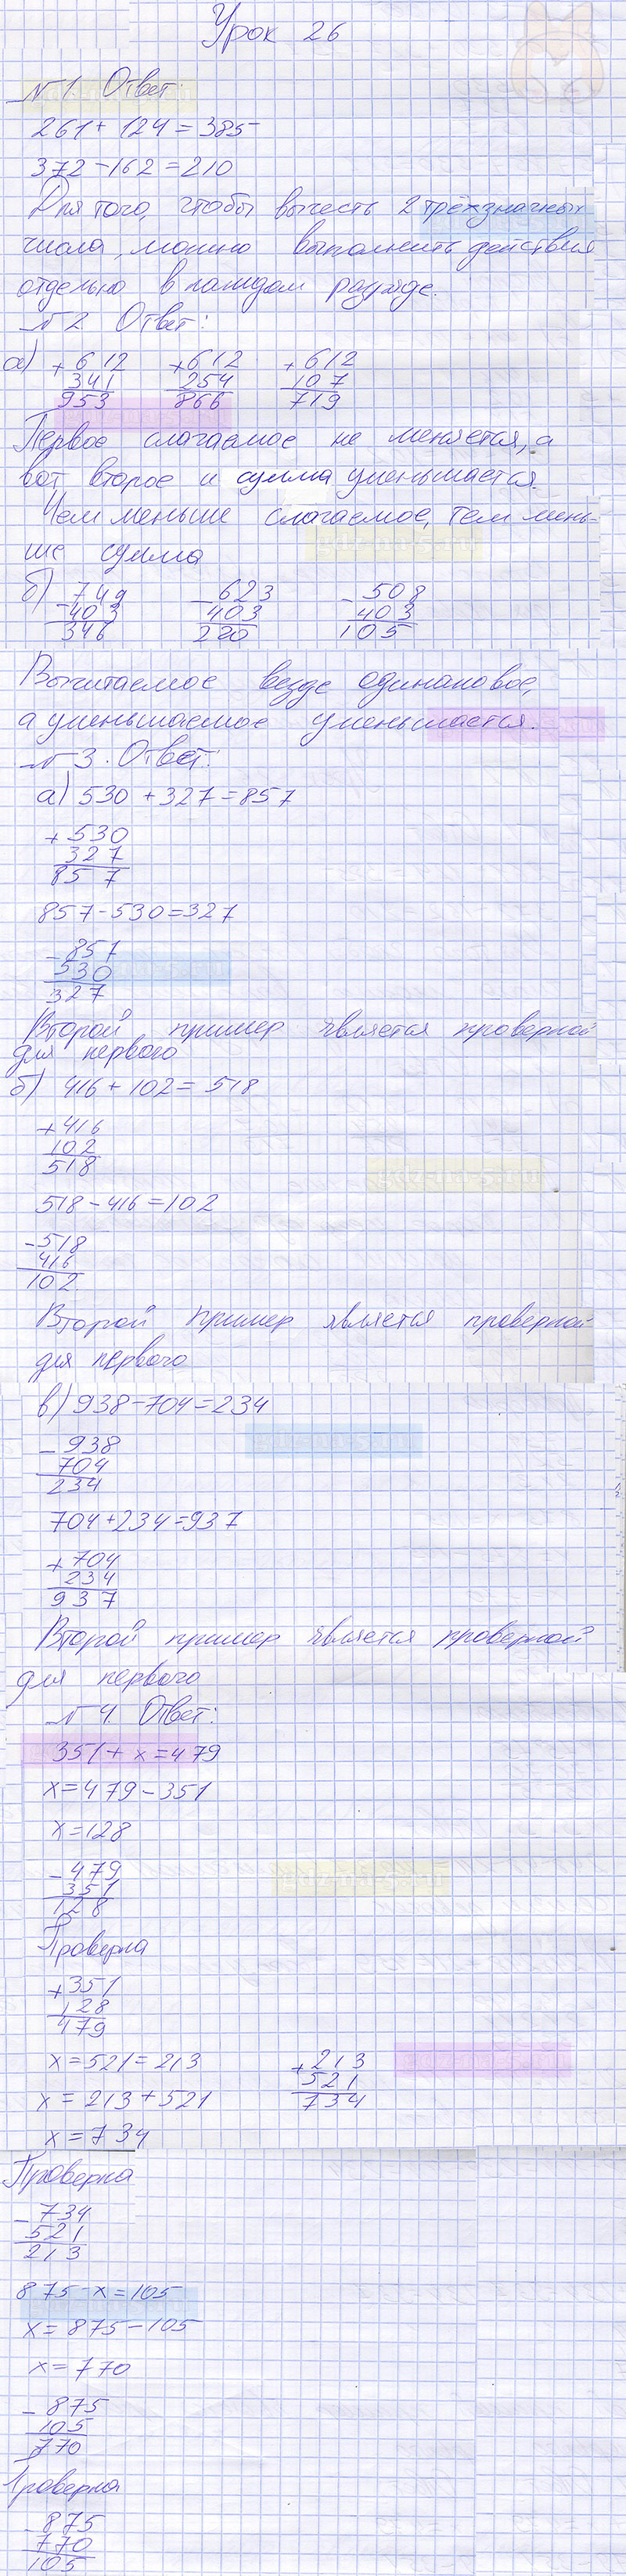 Урок 26
№ 1. Ответ:
261 + 124 = 385
372 - 162 = 210
Для того, чтобы вычесть 2 трёхзначных
числа, можно выполнить действия
отдельно в каждом разряде.
№ 2 Ответ:
а) + 612 + 612 + 612
341 254 107
953 866 719
Первое слагаемое не меняется, а
вот второе и сумма уменьшается.
Чем меньше слагаемое, тем мень-
ше сумма
б) - 749 - 623 - 508
403 403 403
346 220 105
Вычитаемое везде одинаковое,
а уменьшаемое уменьшается.
№ 3. Ответ:
а) 530 + 327 = 857
+ 530
327
857
857 - 530 = 327
- 857
530
327
Второй пример является проверкой
для первого
б) 416 + 102 = 518
+ 416
102
518
518 - 416 = 102
- 518
416
102
Второй пример является проверкой
для первого
в) 938 - 704 = 234
- 938
704
234
704 + 234 = 937
+ 704
234
937
Второй пример является проверкой
для первого
№ 4. Ответ:
351 + x = 479
x = 479 - 351
x = 128
- 479
351
128
Проверка
+ 351
128
479
x = 521 = 213 + 213
x = 213 + 521 521
x = 734 734
Проверка
- 734
521
213
875 - x = 105
x = 875 - 105
x = 770
- 875
105
770
Проверка
- 875
770
105